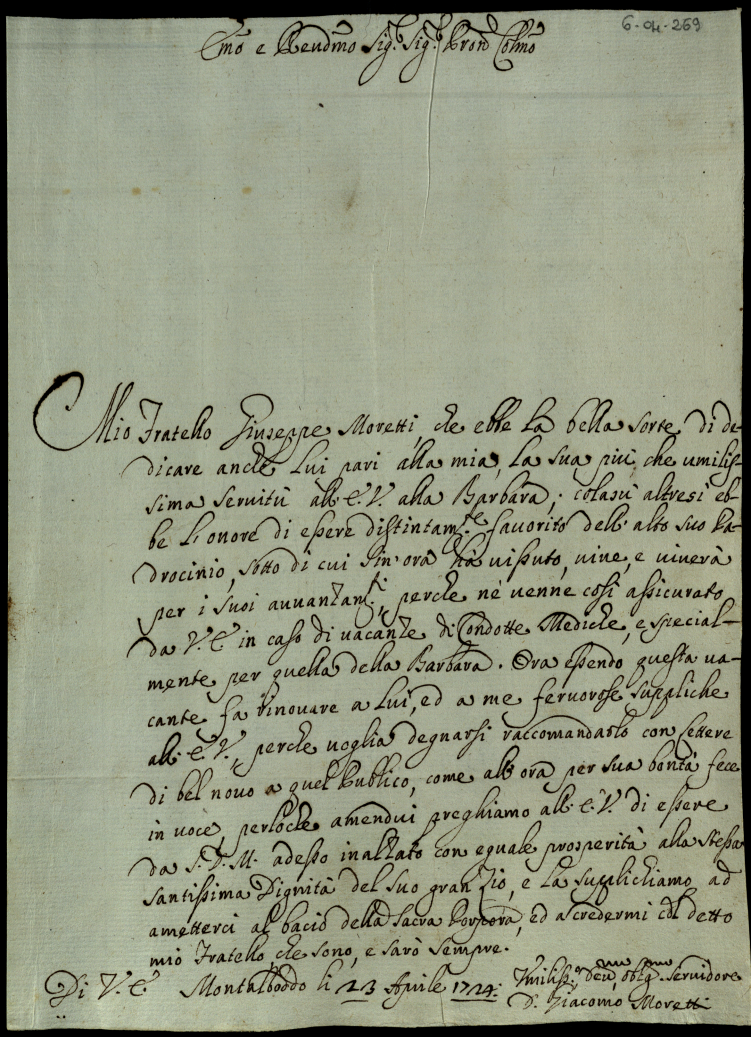 6-04-269
Emo e Revdmo Sig.r Sig.r Pron Colmo
Mio Fratello Giuseppe Moretti che ebbe la bella sorte di de-
dicare anche Lui pari alla mia, la sua più che umilis-
sima servitù all'E.V. alla Barbara, colasù altresì eb-
be l'onore di essere distintam.te favorito dell'alto suo Pa-
drocinio, sotto di cui sin'ora hà vissuto, vive, e viverà
per i suoi avvantam.ti, perche nè venne così assicurato
da V.E. in caso di vacanze di Condotte Mediche, e special-
mente per quella della Barbara. Ora essendo questa va-
cante fa rinovare a Lui, ed a me fervorose suppliche
all'E.V., perche voglia degnarsi raccomandarlo con lettere
di bel novo a quel Publico, come all'ora per sua bontà fece
in voce, perloche amendui preghiamo all'E.V. di essere
da S.D.M. adesso inalzato con eguale prosperità alla stessa
santissima Dignità del suo gran Zio, e La supplichiamo ad
ametterci al bacio della Sacra Porpora, ed a credermi col detto
mio Fratello che sono, e sarò sempre.
Di V.E. Montalboddo li 23 Aprile 1724.
Umiliss.o devmo, oblg.mo servidore
D. Giacomo Moretti